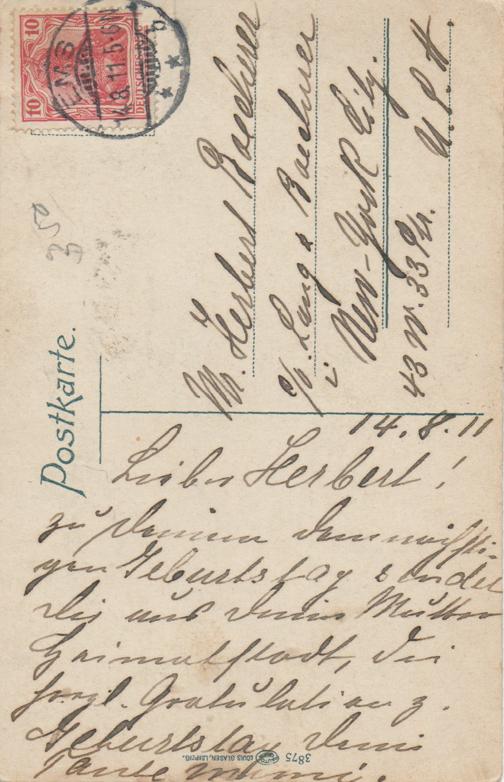 Postkarte.
Mr. Herbert Boechner
c/o. Lang & Boechner
i New-York City.
43 W. 33 Str. U.S.A.
10 10
DEUTSCHES
EMS
4.8.11.5-6N
b
35
14.8.11
Lieber Herbert!
zu Deinem demnächsti-
gen Geburtstag sendet
Dir aus Deiner Mutter
Heimatstadt, die
herzl. Gratulation z.
Geburtstag Deine
Tante
LOUIS GLASER, LEIPZIG.
3875